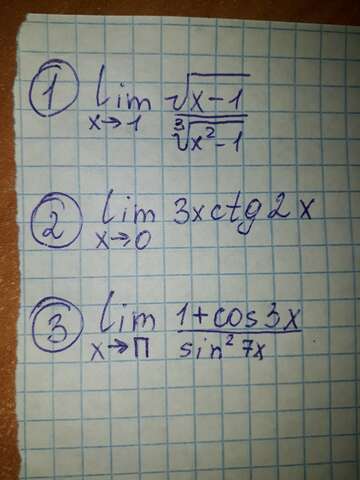 ① lim x→1 √(x-1) / ∛(x²-1)
② lim x→0 3x ctg 2x
③ lim x→π (1+cos3x) / (sin² 7x)